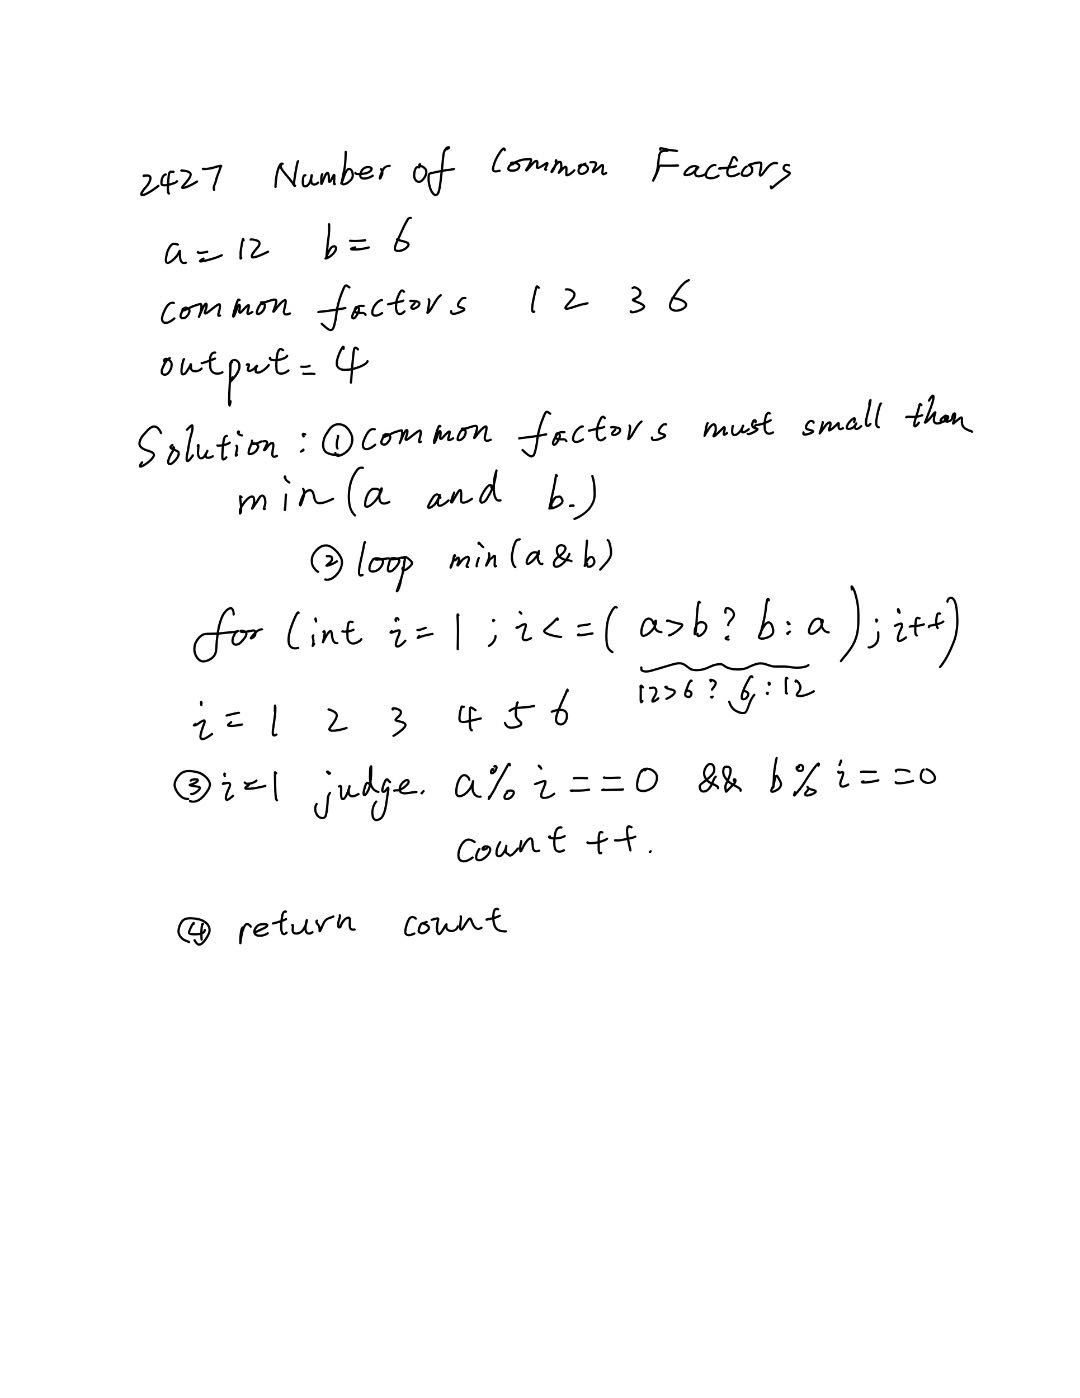 2427 Number of Common Factors
a=12 b=6
common factors 1 2 3 6
output=4
Solution: ① common factors must small than
min(a and b.)
② loop min(a&b)
for (int i=1; i<=( a>b? b: a ); i++)
12>6? 6:12
i=1 2 3 4 5 6
③ i=1 judge. a%i==0 && b%i==0
count ++.
④ return count